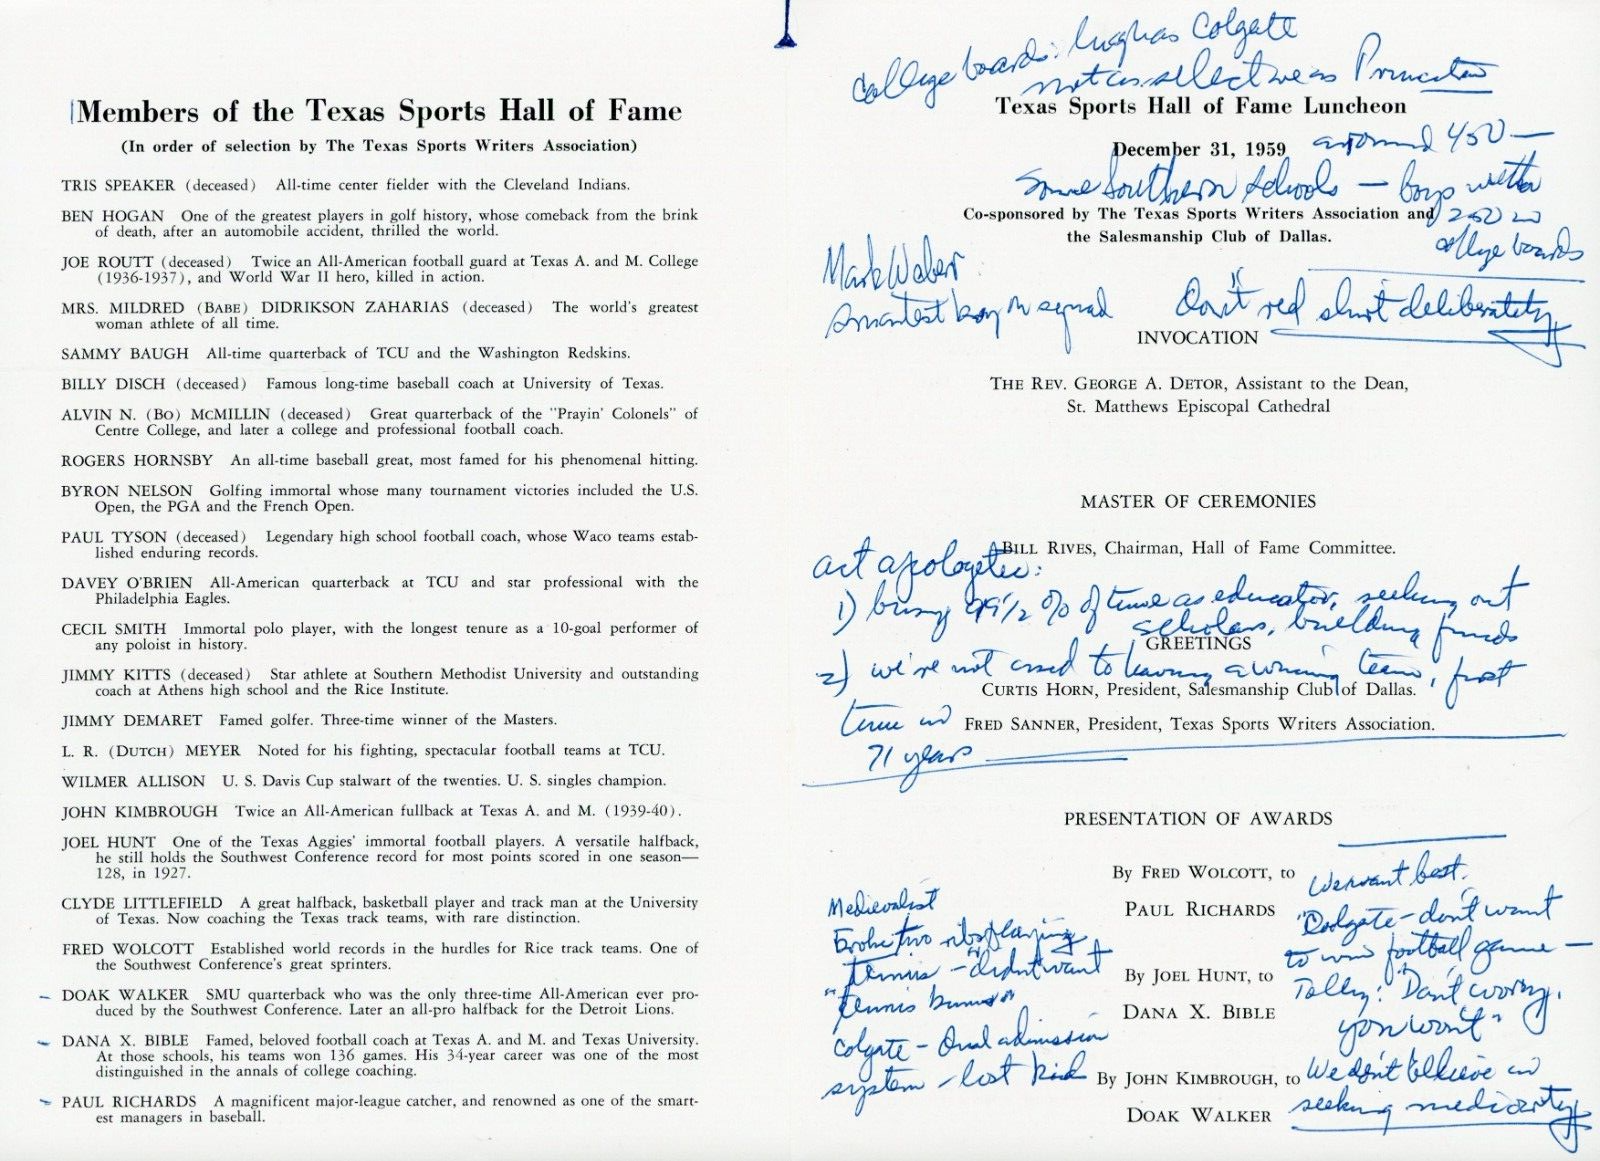 Members of the Texas Sports Hall of Fame
(In order of selection by The Texas Sports Writers Association)
TRIS SPEAKER (deceased) All-time center fielder with the Cleveland Indians.
BEN HOGAN One of the greatest players in golf history, whose comeback from the brink
of death, after an automobile accident, thrilled the world.
JOE ROUTT (deceased) Twice an All-American football guard at Texas A. and M. College
(1936-1937), and World War II hero, killed in action.
MRS. MILDRED (BABE) DIDRIKSON ZAHARIAS (deceased) The world's greatest
woman athlete of all time.
SAMMY BAUGH All-time quarterback of TCU and the Washington Redskins.
BILLY DISCH (deceased) Famous long-time baseball coach at University of Texas.
ALVIN N. (BO) McMILLIN (deceased) Great quarterback of the "Prayin' Colonels" of
Centre College, and later a college and professional football coach.
ROGERS HORNSBY An all-time baseball great, most famed for his phenomenal hitting.
BYRON NELSON Golfing immortal whose many tournament victories included the U.S.
Open, the PGA and the French Open.
PAUL TYSON (deceased) Legendary high school football coach, whose Waco teams estab-
lished enduring records.
DAVEY O'BRIEN All-American quarterback at TCU and star professional with the
Philadelphia Eagles.
CECIL SMITH Immortal polo player, with the longest tenure as a 10-goal performer of
any poloist in history.
JIMMY KITTS (deceased) Star athlete at Southern Methodist University and outstanding
coach at Athens high school and the Rice Institute.
JIMMY DEMARET Famed golfer. Three-time winner of the Masters.
L. R. (DUTCH) MEYER Noted for his fighting, spectacular football teams at TCU.
WILMER ALLISON U. S. Davis Cup stalwart of the twenties. U. S. singles champion.
JOHN KIMBROUGH Twice an All-American fullback at Texas A. and M. (1939-40).
JOEL HUNT One of the Texas Aggies' immortal football players. A versatile halfback,
he still holds the Southwest Conference record for most points scored in one season—
128, in 1927.
CLYDE LITTLEFIELD A great halfback, basketball player and track man at the University
of Texas. Now coaching the Texas track teams, with rare distinction.
FRED WOLCOTT Established world records in the hurdles for Rice track teams. One of
the Southwest Conference's great sprinters.
DOAK WALKER SMU quarterback who was the only three-time All-American ever pro-
duced by the Southwest Conference. Later an all-pro halfback for the Detroit Lions.
DANA X. BIBLE Famed, beloved football coach at Texas A. and M. and Texas University.
At those schools, his teams won 136 games. His 34-year career was one of the most
distinguished in the annals of college coaching.
PAUL RICHARDS A magnificent major-league catcher, and renowned as one of the smart-
est managers in baseball.
College boards: Colgate
not as selective as Princeton
Texas Sports Hall of Fame Luncheon
December 31, 1959
around 450 —
Some Southern schools — boys with
Co-sponsored by The Texas Sports Writers Association and
250 in
the Salesmanship Club of Dallas.
college boards
Mark Weber
smartest boy on squad
Don't red shirt deliberately
INVOCATION
THE REV. GEORGE A. DETOR, Assistant to the Dean,
St. Matthews Episcopal Cathedral
MASTER OF CEREMONIES
BILL RIVES, Chairman, Hall of Fame Committee.
act apologetic:
1) busy 99 1/2 % of time as educator, seeking out
scholars, building funds
GREETINGS
2) we're not used to having a winning team, first
CURTIS HORN, President, Salesmanship Club of Dallas.
time in
FRED SANNER, President, Texas Sports Writers Association.
71 years
PRESENTATION OF AWARDS
By FRED WOLCOTT, to
PAUL RICHARDS
By JOEL HUNT, to
DANA X. BIBLE
By JOHN KIMBROUGH, to
DOAK WALKER
Medievalist
Broke two ribs playing
tennis - didn't want
"tennis bum"
Colgate - Oral admission
system - lost kid
We want best.
"Colgate - don't want
to win football game —
Tolley: "Don't worry,
you won't"
We don't believe in
seeking mediocrity